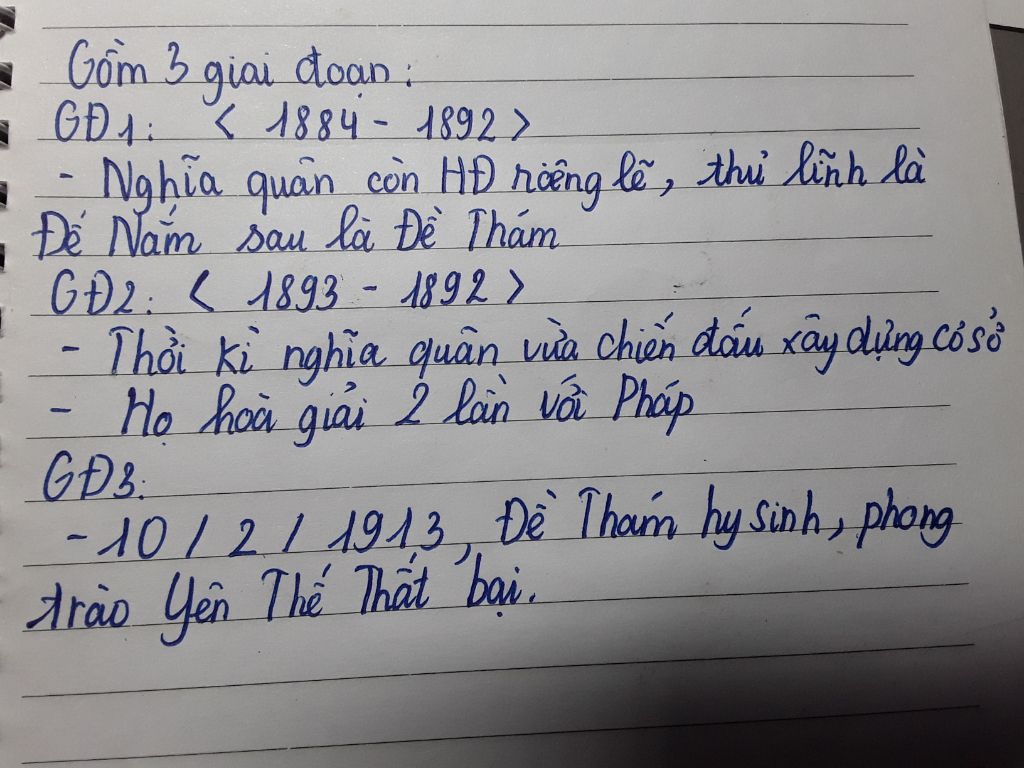 Gồm 3 giai đoạn:
GĐ1: < 1884 - 1892 >
- Nghĩa quân còn HĐ riêng lẽ, thủ lĩnh là
Đế Nắm sau là Đề Thám
GĐ2: < 1893 - 1892 >
- Thời kì nghĩa quân vừa chiến đấu xây dựng cơ sở
- Họ hoà giải 2 lần với Pháp
GĐ3:
- 10 / 2 / 1913, Đề Thám hy sinh, phong
trào Yên Thế Thất bại.